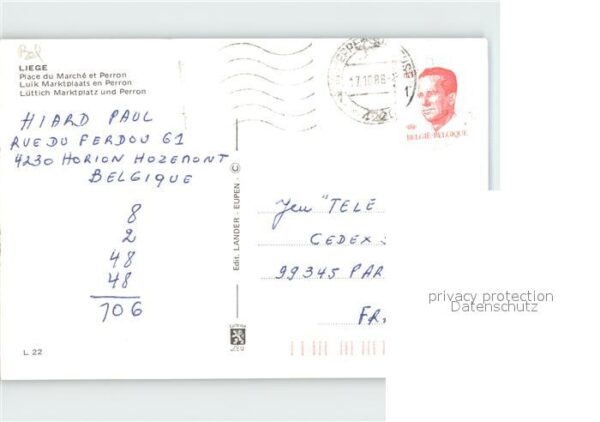 Bel
LIEGE
Place du Marché et Perron
Luik Marktplaats en Perron
Lüttich Marktplatz und Perron
HIARD PAUL
RUE DU PERDOU 61
4230 HORION HOZEMONT
BELGIQUE
8
2
48
48
106
L. 22
Edit. LANDER - EUPEN - ©
BELGIË-BELGIQUE
Jeu "TELE
CEDEX
99345 PAR
FR
privacy protection
Datenschutz